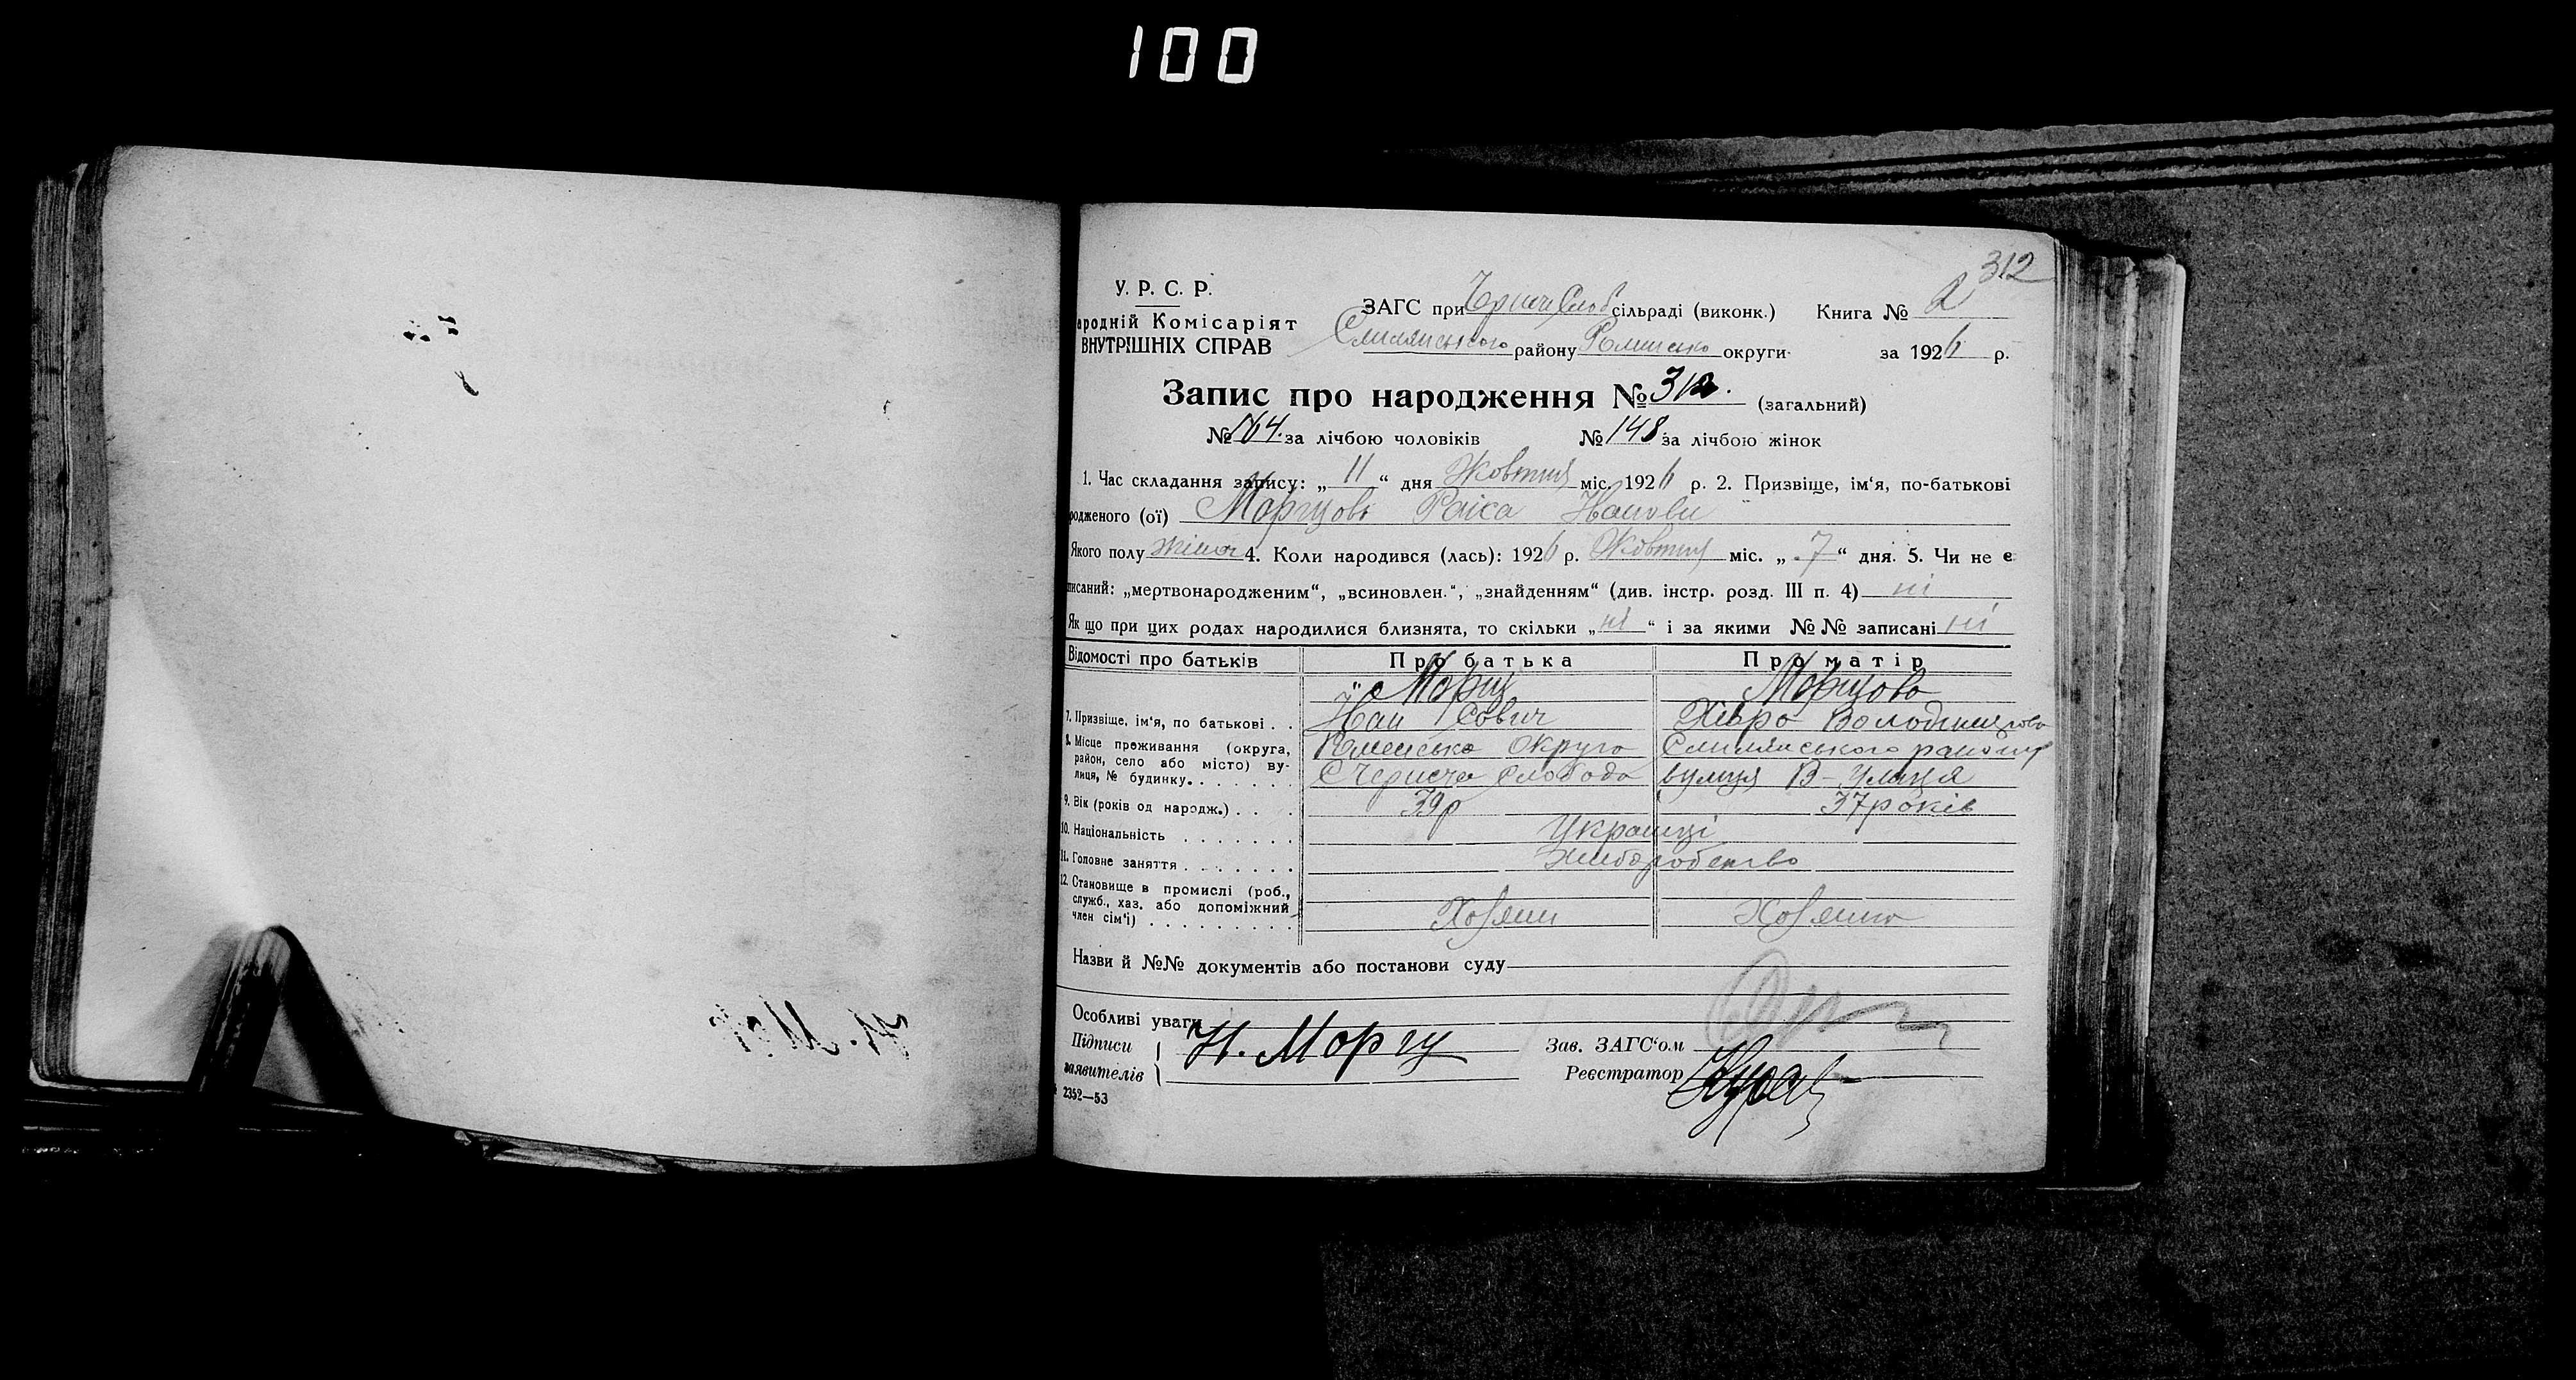 100
312
У. Р. С. Р.
ародній Комісаріят
ВНУТРІШНІХ СПРАВ
ЗАГС при Чернеч Слоб сільраді (виконк.) Книга № 2
Смілянського району Роменсько округи за 1926 р.
Запис про народження № 312. (загальний)
№ 164. за лічбою чоловіків № 148 за лічбою жінок
1. Час складання запису: „ 11 “ дня Жовтня міс. 1926 р. 2. Призвіще, ім‘я, по-батькові
родженого (ої) Раіса Ивановн
Якого полу жіноч 4. Коли народився (лась): 1926 р. Жовтня міс. „ 7 “ дня. 5. Чи не є
писаний: „мертвонародженим“, „всиновлен.“, „знайденням“ (див. інстр. розд. III п. 4) ні
Як що при цих родах народилися близнята, то скільки „ ні “ і за якими №№ записані ні
Відомості про батьків Про батька Про матір
7. Призвіще, ім‘я, по батькові . . Иван Хівра
8. Місце проживання (округа, район, село або місто) вулиця, № будинку. Роменська Округа Смілянського району
С Чернеча Слобода вулиця В-Улиця
9. Вік (років од народж.) . . . 39р 37 років
10. Національність . . . . . . . Українці
11. Головне заняття . . . . . . . Хліборобство
12. Становище в промислі (роб., служб., хаз. або допоміжний член сім‘ї) . . . . . . . . . Хозяин Хозяйка
Назви й №№ документів або постанови суду
Особливі уваги
Підписи
заявителів
И. Моргу
Зав. ЗАГС‘ом
Реєстратор
2352—53